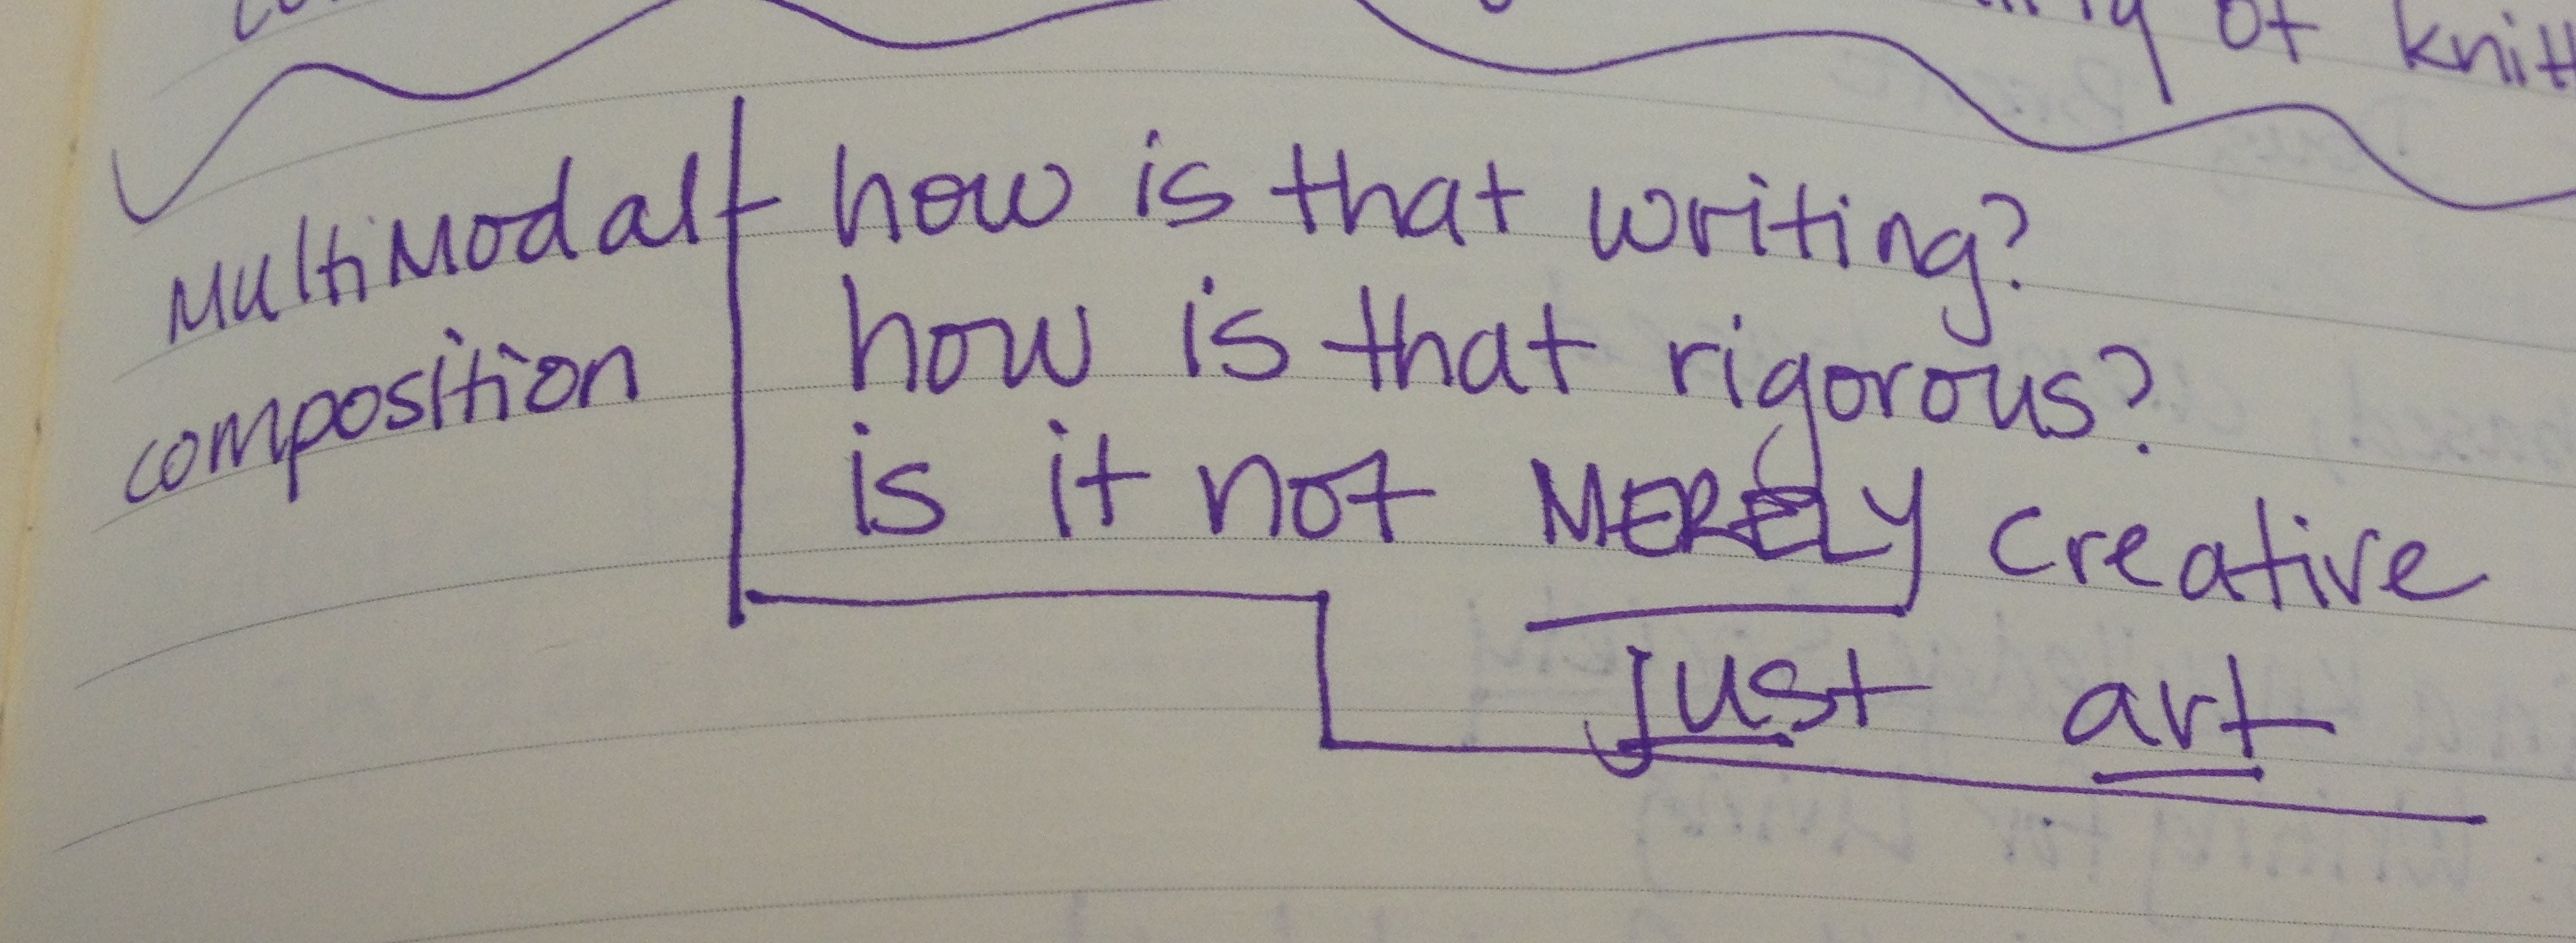 of
MultiModal
composition
how is that writing?
how is that rigorous?
is it not MERELY creative
just art